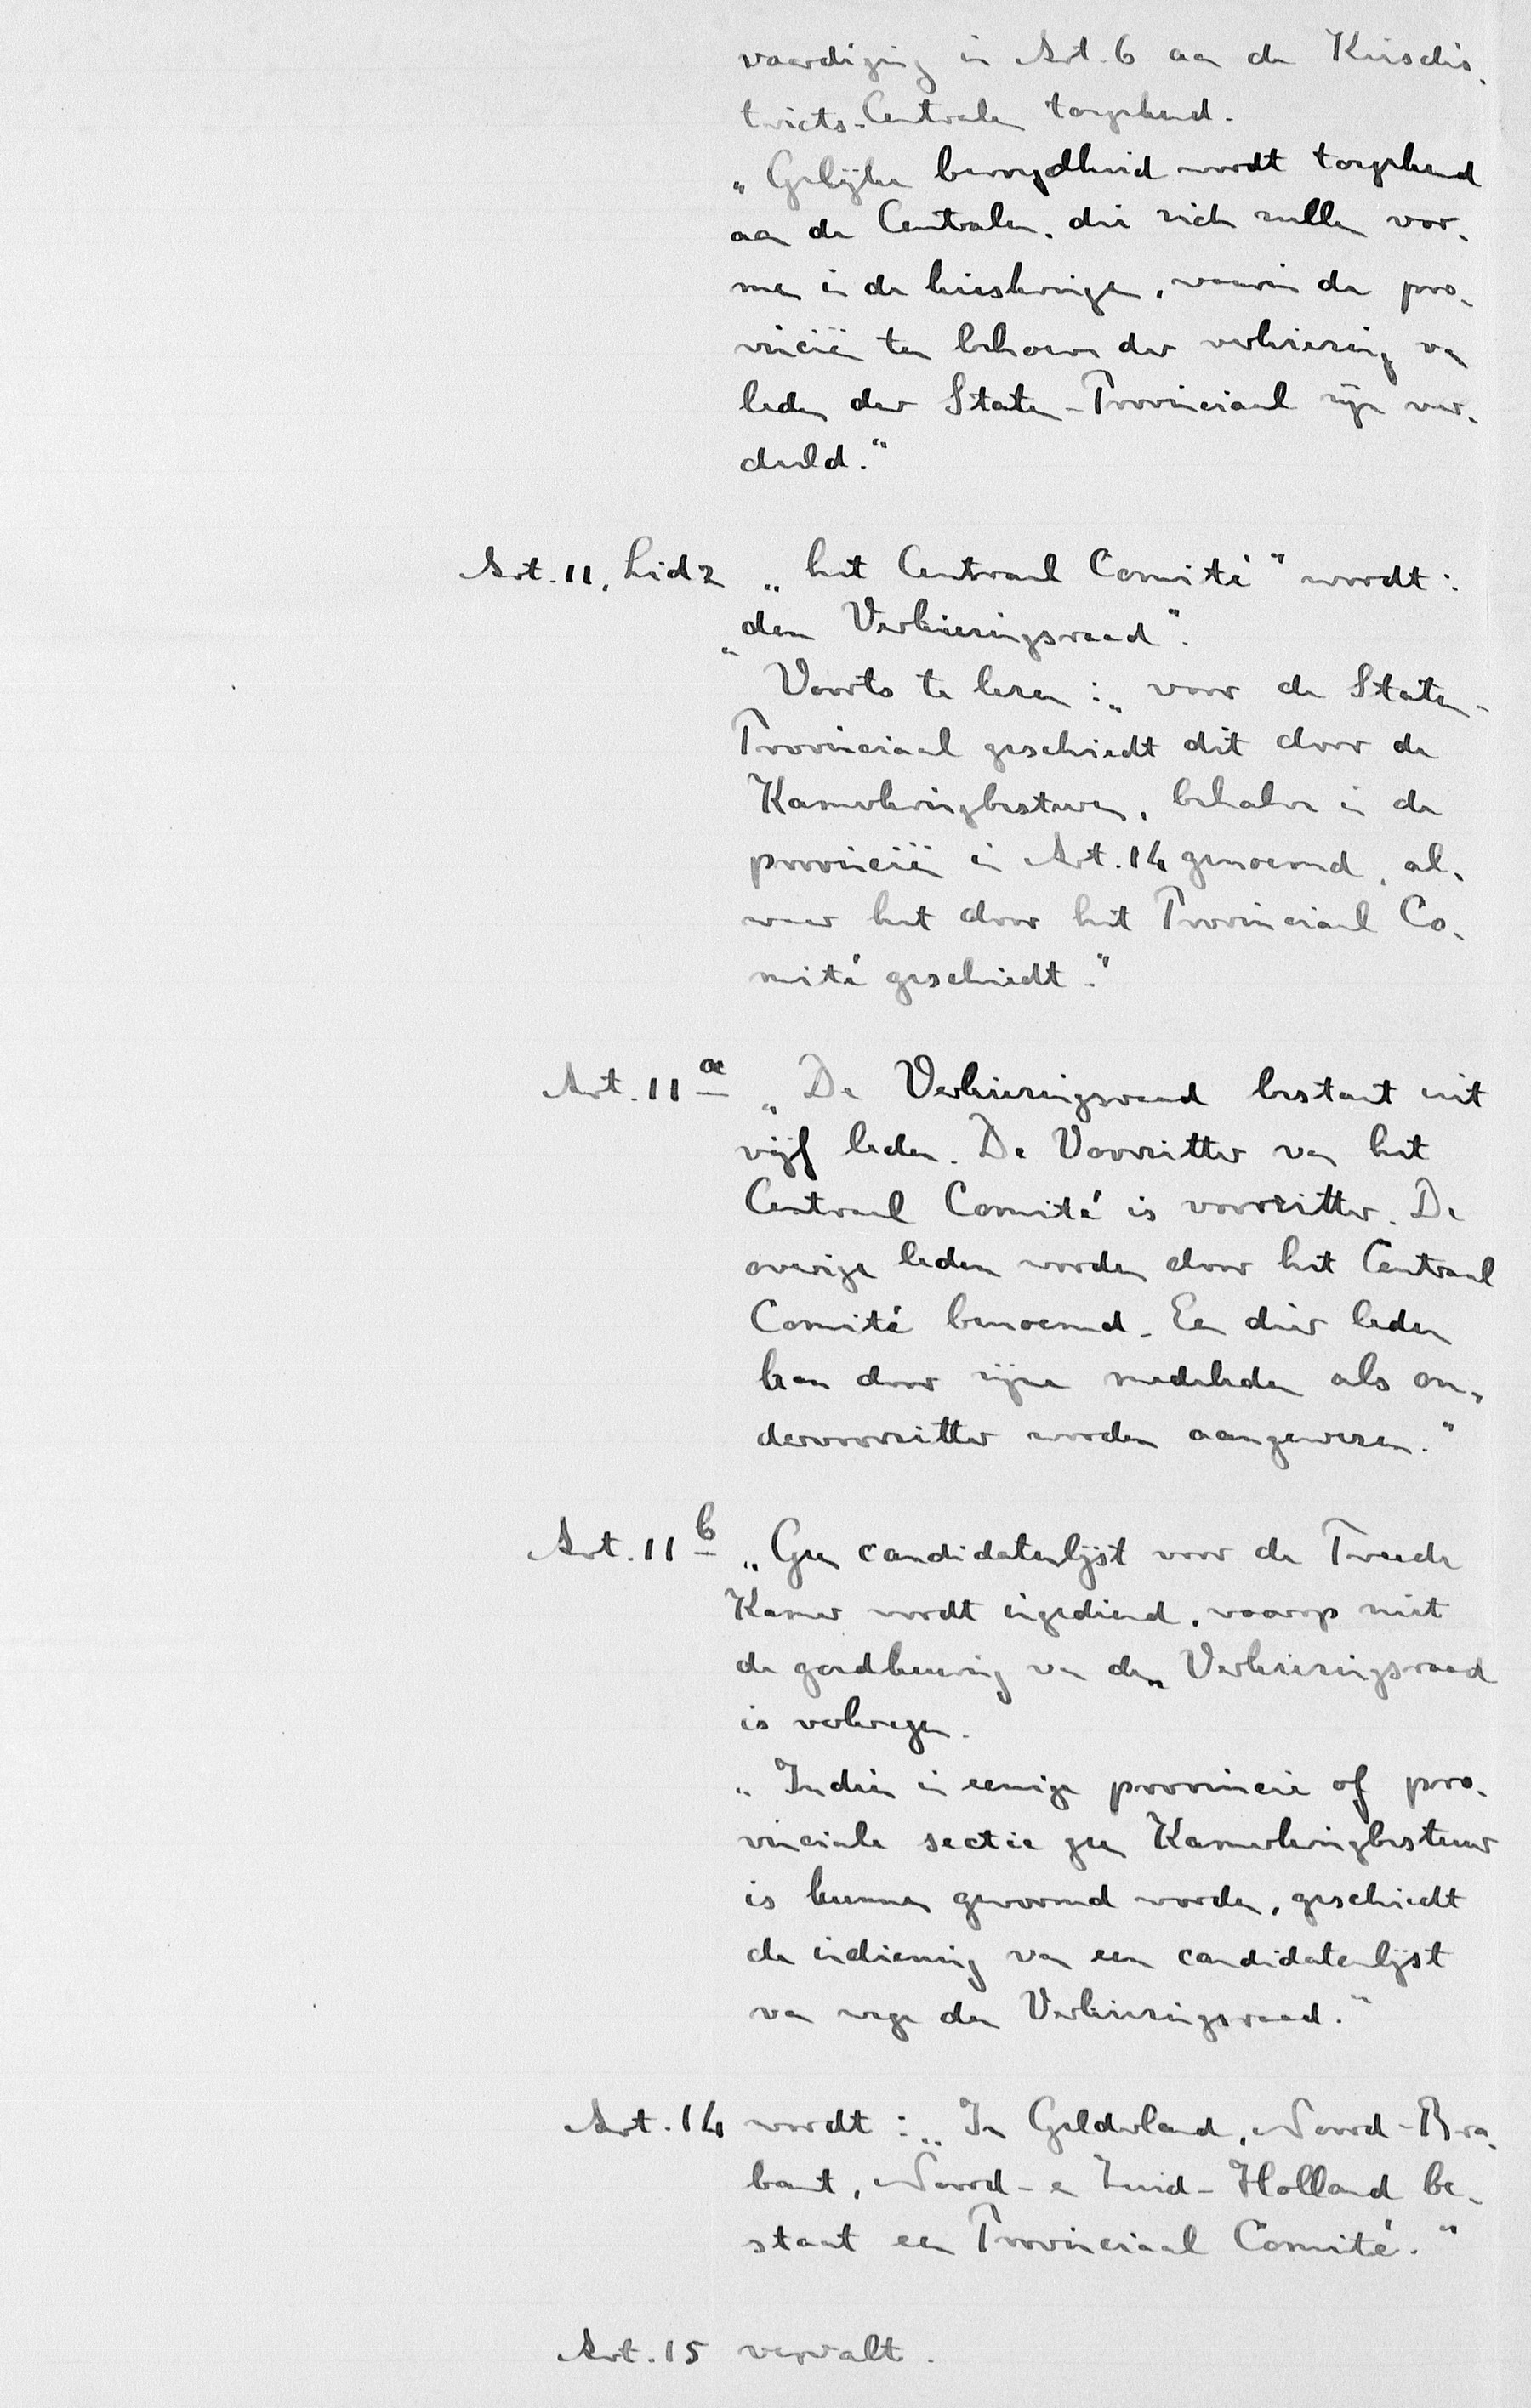 vaardiging in Art. 6 aan de Kiesdis-
tricts-Centralen toegekend.
„Gelijke bevoegdheid wordt toegekend
aan de Centralen, die zich zullen vor-
men in de kieskringen, waarin de pro-
vinciën ten behoeve der verkiezing van
leden der Staten-Provinciaal zijn ver-
deeld."
Art. 11, Lid 2 „het Centraal Comité" wordt:
„den Verkiezingsraad".
Voorts te lezen: „voor de Staten-
Provinciaal geschiedt dit door de
Kamerkringbesturen, behalve in de
provinciën in Art. 14 genoemd, al-
waar het door het Provinciaal Co-
mité geschiedt."
Art. 11a „De Verkiezingsraad bestaat uit
vijf leden. De Voorzitter van het
Centraal Comité is voorzitter. De
overige leden worden door het Centraal
Comité benoemd. Een dier leden
kan door zijne medeleden als on-
dervoorzitter worden aangewezen."
Art. 11b „Geen candidatenlijst voor de Tweede
Kamer wordt ingediend, waarop niet
de goedkeuring van den Verkiezingsraad
is verkregen.
„Indien in eenige provincie of pro-
vinciale sectie geen Kamerkringbestuur
is kunnen gevormd worden, geschiedt
de indiening van een candidatenlijst
van wege den Verkiezingsraad."
Art. 14 wordt: „In Gelderland, Noord-Bra-
bant, Noord- en Zuid-Holland be-
staat een Provinciaal Comité."
Art. 15 vervalt.